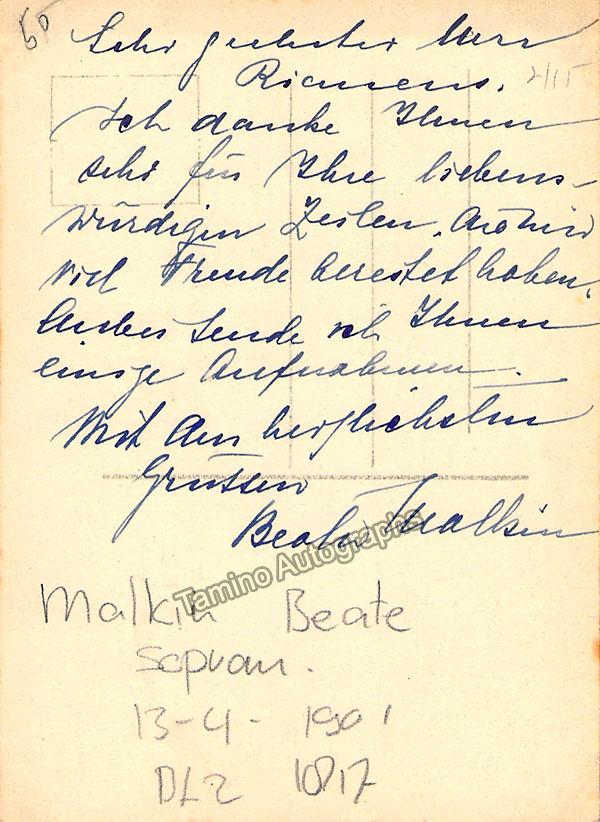 50
Sehr geehrter Herr
Riemens.
2/15
Ich danke Ihnen
sehr für Ihre liebens-
würdigen Zeilen, die mir
viel Freude bereitet haben.
Anbei sende ich Ihnen
einige Aufnahmen.
Mit den herzlichsten
Grüssen
Beate Malkin
Tamino Autographs
Malkin Beate
Sopran.
13-4-1901
DL2 10817